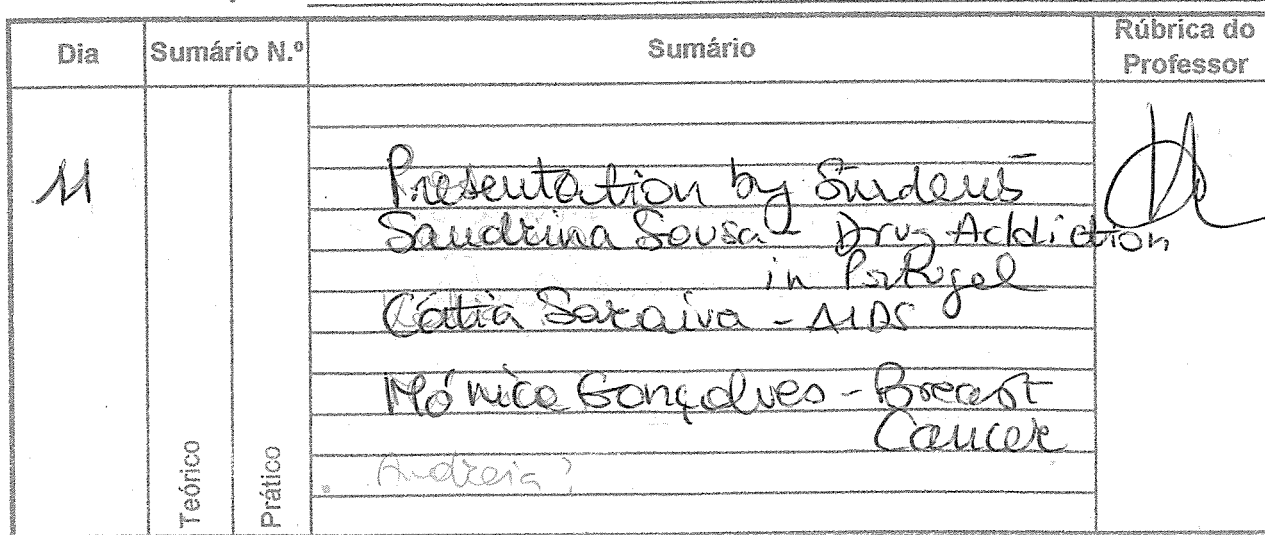 Dia
Sumário N.º
Sumário
Rúbrica do
Professor
11
Presentation by Students
Sandrina Sousa - Drug Addiction
in Portugal
Cátia Saraiva - AIDS
Mónica Gonçalves - Breast
Cancer
. Andreia?
Teórico
Prático